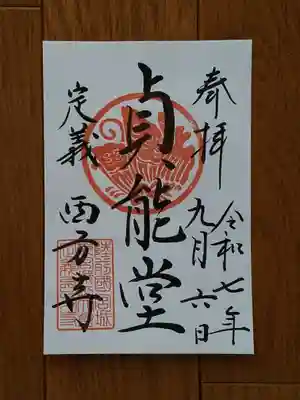 奉拝
令和七年
九月六日
貞能堂
定義
西方寺